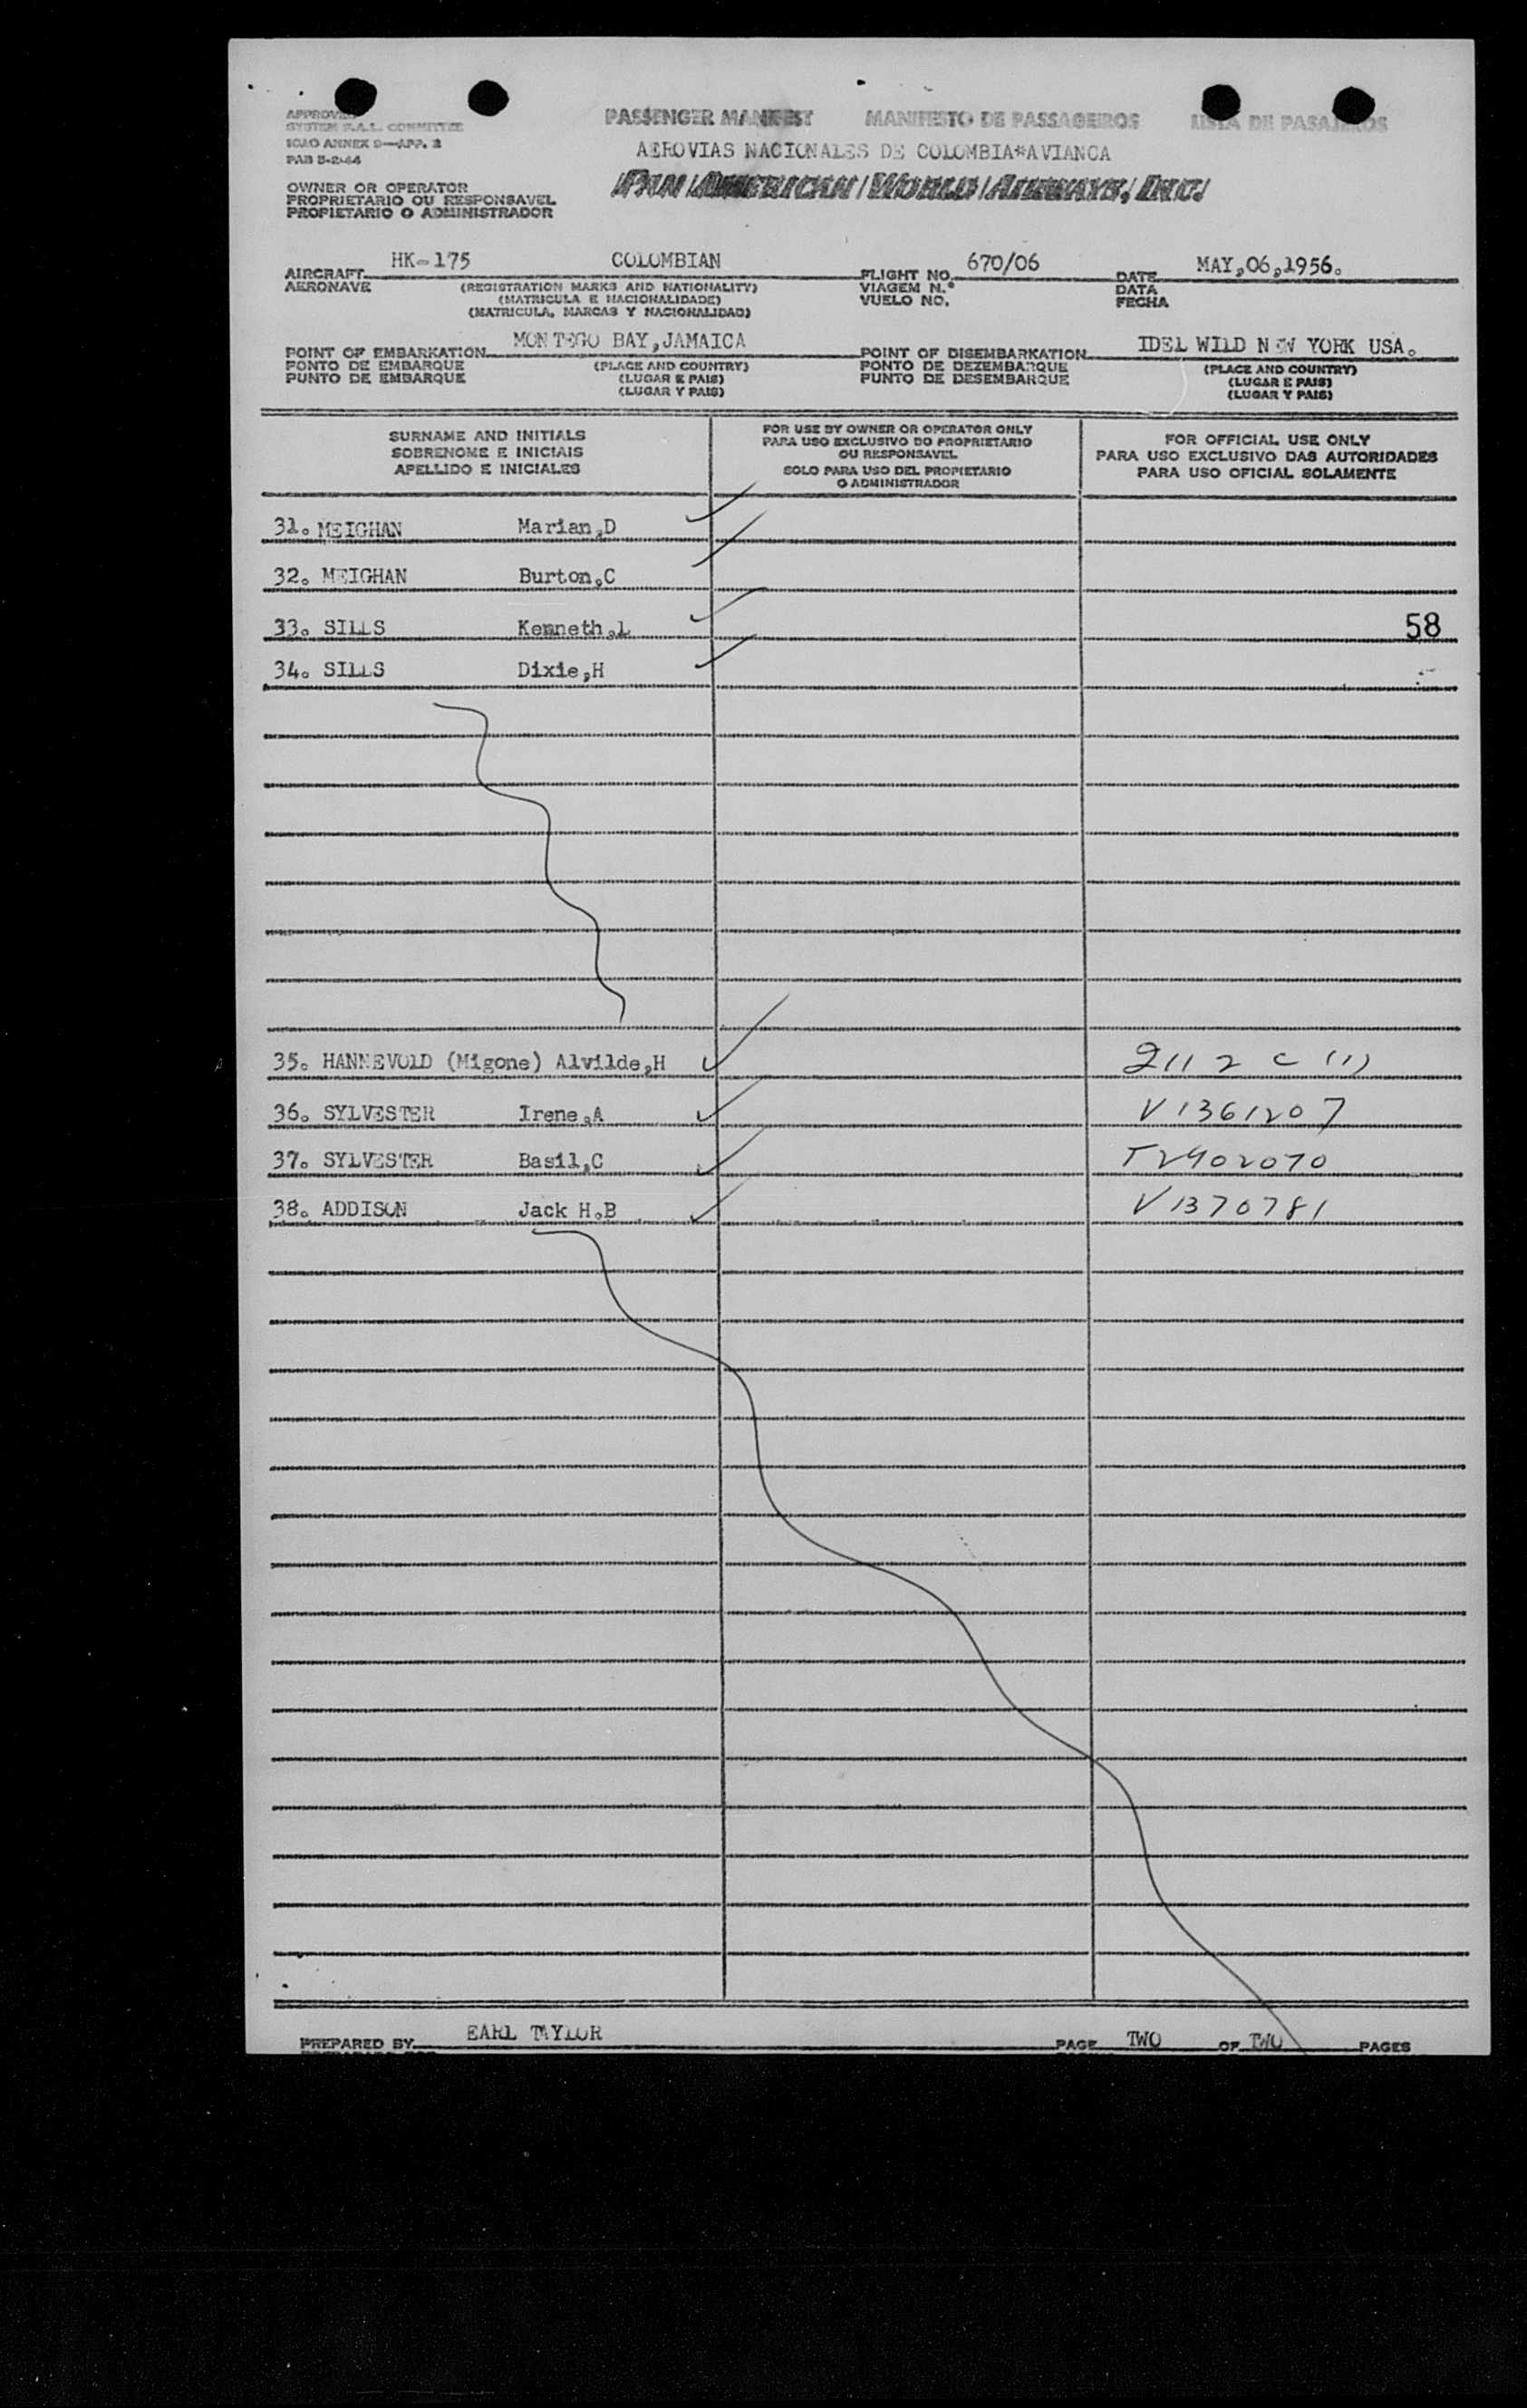 APPROVED
SYSTEM F.A.L. COMMITTEE
ICAO ANNEX 9—APP. 3
PAB 5-2-44
PASSENGER MANIFEST MANIFESTO DE PASSAGEIROS LISTA DE PASAJEROS
AEROVIAS NACIONALES DE COLOMBIA*AVIANCA
PAN AMERICAN WORLD AIRWAYS, INC.
OWNER OR OPERATOR
PROPRIETARIO OU RESPONSAVEL
PROPIETARIO O ADMINISTRADOR
AIRCRAFT HK-175 COLOMBIAN FLIGHT NO. 670/06 DATE MAY,06,1956.
AERONAVE (REGISTRATION MARKS AND NATIONALITY) VIAGEM N.º DATA
(MATRICULA E NACIONALIDADE) VUELO NO. FECHA
(MATRICULA, MARCAS Y NACIONALIDAD)
POINT OF EMBARKATION MONTEGO BAY,JAMAICA POINT OF DISEMBARKATION IDEL WILD NEW YORK USA.
PONTO DE EMBARQUE (PLACE AND COUNTRY) PONTO DE DEZEMBARQUE (PLACE AND COUNTRY)
PUNTO DE EMBARQUE (LUGAR E PAIS) PUNTO DE DESEMBARQUE (LUGAR E PAIS)
(LUGAR Y PAIS) (LUGAR Y PAIS)
SURNAME AND INITIALS
SOBRENOME E INICIAIS
APELLIDO E INICIALES
FOR USE BY OWNER OR OPERATOR ONLY
PARA USO EXCLUSIVO DO PROPRIETARIO
OU RESPONSAVEL
SOLO PARA USO DEL PROPIETARIO
O ADMINISTRADOR
FOR OFFICIAL USE ONLY
PARA USO EXCLUSIVO DAS AUTORIDADES
PARA USO OFICIAL SOLAMENTE
31. MEIGHAN Marian,D
32. MEIGHAN Burton,C
33. SILLS Kenneth,L 58
34. SILLS Dixie,H
35. HANNEVOLD (Migone) Alvilde,H 2112 c (1)
36. SYLVESTER Irene,A V1361207
37. SYLVESTER Basil,C T2902070
38. ADDISON Jack H.B V1370781
PREPARED BY EARL TAYLOR PAGE TWO OF TWO PAGES